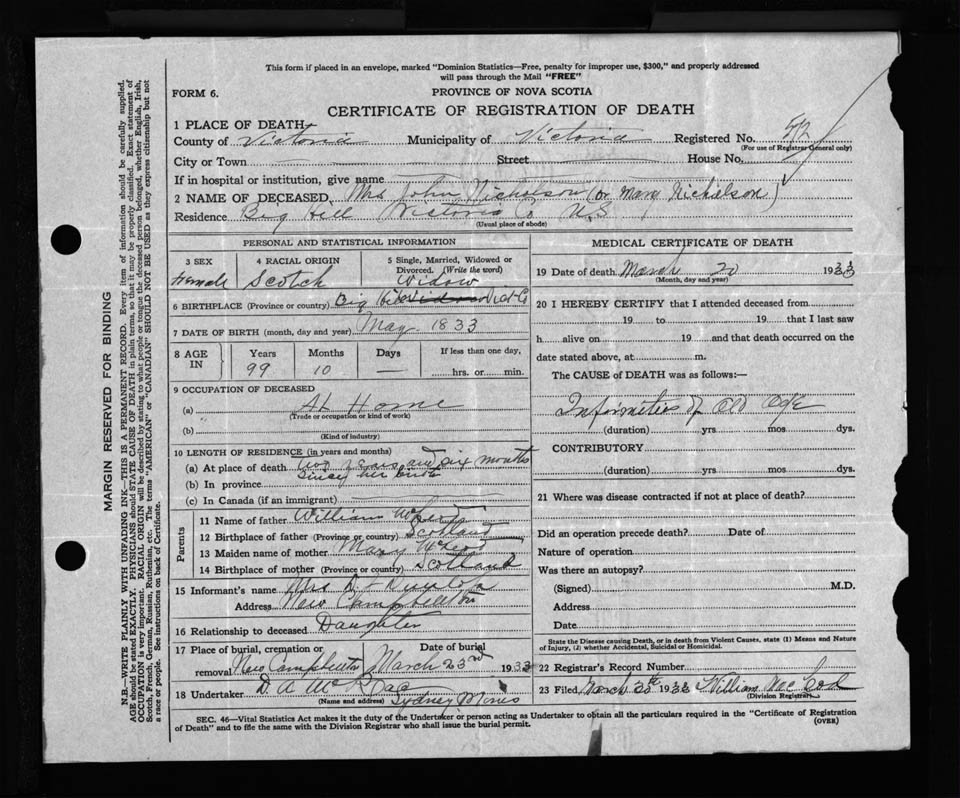 This form if placed in an envelope, marked "Dominion Statistics—Free, penalty for improper use, $300," and properly addressed
will pass through the Mail "FREE"
FORM 6.
PROVINCE OF NOVA SCOTIA
CERTIFICATE OF REGISTRATION OF DEATH
1 PLACE OF DEATH
County of Victoria Municipality of Victoria Registered No.
(For use of Registrar General only)
City or Town Street House No.
If in hospital or institution, give name
2 NAME OF DECEASED, Mrs John Nicholson (or Mary Nicholson)
Residence Big Hill Victoria Co N.S
(Usual place of abode)
PERSONAL AND STATISTICAL INFORMATION
3 SEX 4 RACIAL ORIGIN 5 Single, Married, Widowed or
Divorced. (Write the word)
Female Scotch Widow
6 BIRTHPLACE (Province or country) Big Vict Co
7 DATE OF BIRTH (month, day and year) May 1833
8 AGE IN Years Months Days If less than one day,
99 10 — hrs. or min.
9 OCCUPATION OF DECEASED
(a) At Home
(Trade or occupation or kind of work)
(b)
(Kind of industry)
10 LENGTH OF RESIDENCE (in years and months)
(a) At place of death two years and six months
(b) In province since her birth
(c) In Canada (if an immigrant)
Parents
11 Name of father William
12 Birthplace of father (Province or country) Scotland
13 Maiden name of mother Mary McLeod
14 Birthplace of mother (Province or country) Scotland
15 Informant's name Mrs D
Address New Campbellton
16 Relationship to deceased Daughter
17 Place of burial, cremation or Date of burial
removal New Campbellton March 23rd 1933
18 Undertaker D A McRae
(Name and address) Sydney Mines
MEDICAL CERTIFICATE OF DEATH
19 Date of death March 20 1933
(Month, day and year)
20 I HEREBY CERTIFY that I attended deceased from
19 to 19 that I last saw
h alive on 19 and that death occurred on the
date stated above, at m.
The CAUSE of DEATH was as follows:—
Infirmities of Old Age
(duration) yrs mos dys.
CONTRIBUTORY
(duration) yrs. mos. dys.
21 Where was disease contracted if not at place of death?
Did an operation precede death? Date of
Nature of operation
Was there an autopsy?
(Signed) M.D.
Address
Date
State the Disease causing Death, or in death from Violent Causes, state (1) Means and Nature
of Injury, (2) whether Accidental, Suicidal or Homicidal.
22 Registrar's Record Number
23 Filed, March 1933 William MacLeod
(Division Registrar)
SEC. 46—Vital Statistics Act makes it the duty of the Undertaker or person acting as Undertaker to obtain all the particulars required in the "Certificate of Registration
of Death" and to file the same with the Division Registrar who shall issue the burial permit.
(OVER)
MARGIN RESERVED FOR BINDING
N.B.—WRITE PLAINLY WITH UNFADING INK—THIS IS A PERMANENT RECORD. Every item of information should be carefully supplied.
AGE should be stated EXACTLY. PHYSICIANS should STATE CAUSE OF DEATH in plain terms, so that it may be properly classified. Exact statement of
OCCUPATION is very important. RACIAL ORIGIN will be described by stating to what people or tongue the deceased person belonged, whether English, Irish,
Scotch, French, German, Russian, Ruthenian, etc. The terms "AMERICAN" or "CANADIAN" SHOULD NOT BE USED as they express citizenship but not
a race or people. See instructions on back of Certificate.